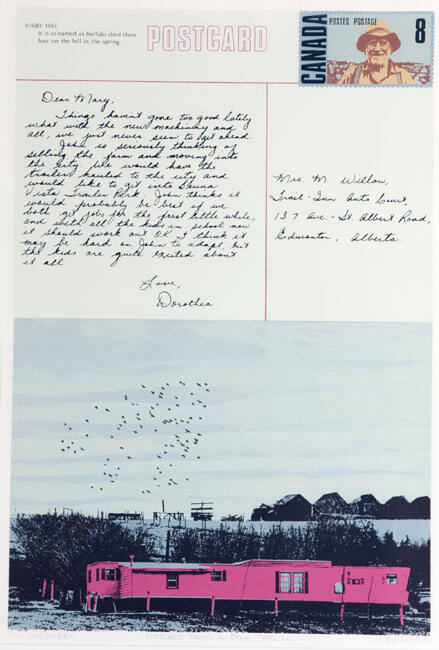 HAIRY HILL
It is so named as buffalo shed their
hair on the hill in the spring.
POSTCARD
CANADA
POSTES POSTAGE
8
Dear Mary,
Things haven't gone too good lately
what with the new machinery and
all, we just never seem to get ahead.
John is seriously thinking of
selling the farm and moving into
the city. We would have the
trailer hauled to the city and
would like to get into Sauna
Vista Trailer Park. John thinks it
would probably be best if we
both get jobs for the first little while,
and with all the kids in school now
it should work out OK. I think it
may be hard on John to adapt, but
the kids are quite excited about
it all.
Love,
Dorothea.
Mrs. M. Willow,
Trail-Inn Auto Court,
137 Ave. - St. Albert Road,
Edmonton, Alberta.